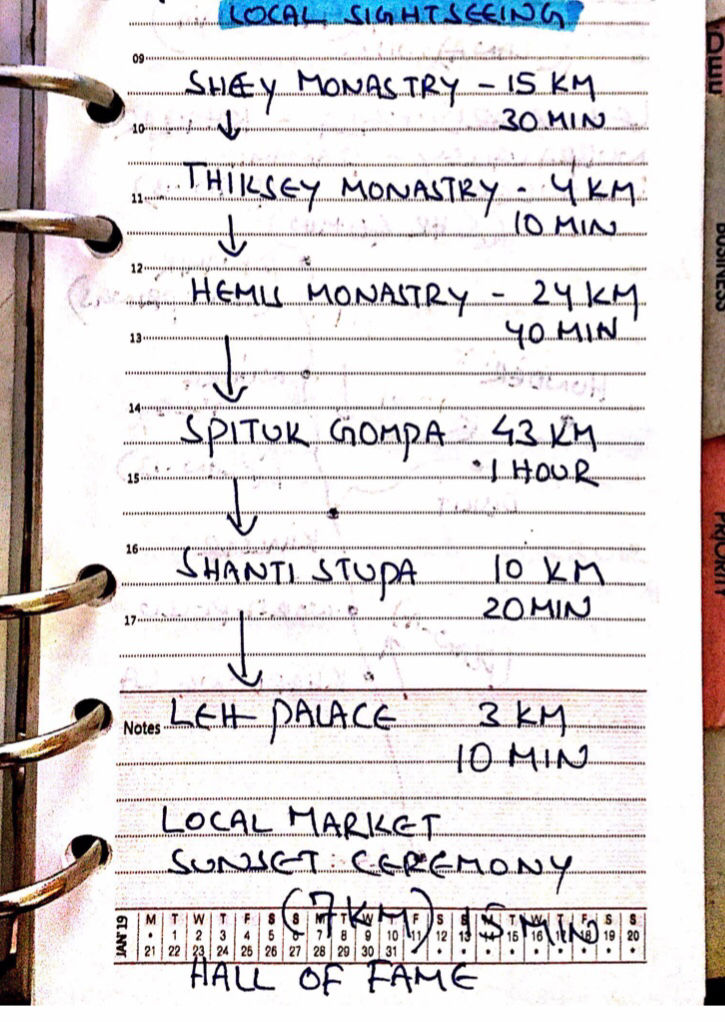 LOCAL SIGHTSEEING
09
SHEY MONASTRY - 15 KM
10 30 MIN
THIKSEY MONASTRY - 4 KM
11
10 MIN
12
HEMIS MONASTRY - 24 KM
40 MIN
13
14
SPITUK GOMPA 43 KM
1 HOUR
15
16
SHANTI STUPA 10 KM
20 MIN
17
Notes LEH PALACE 3 KM
10 MIN
LOCAL MARKET
SUNSET CEREMONY
(7 KM) 15 MIN
JAN'19
M T W T F S S M T W T F S S M T W T F S S
• 1 2 3 4 5 6 7 8 9 10 11 12 13 14 15 16 17 18 19 20
21 22 23 24 25 26 27 28 29 30 31 • • • • • • • • • •
HALL OF FAME
BUSINESS
PRIORITY